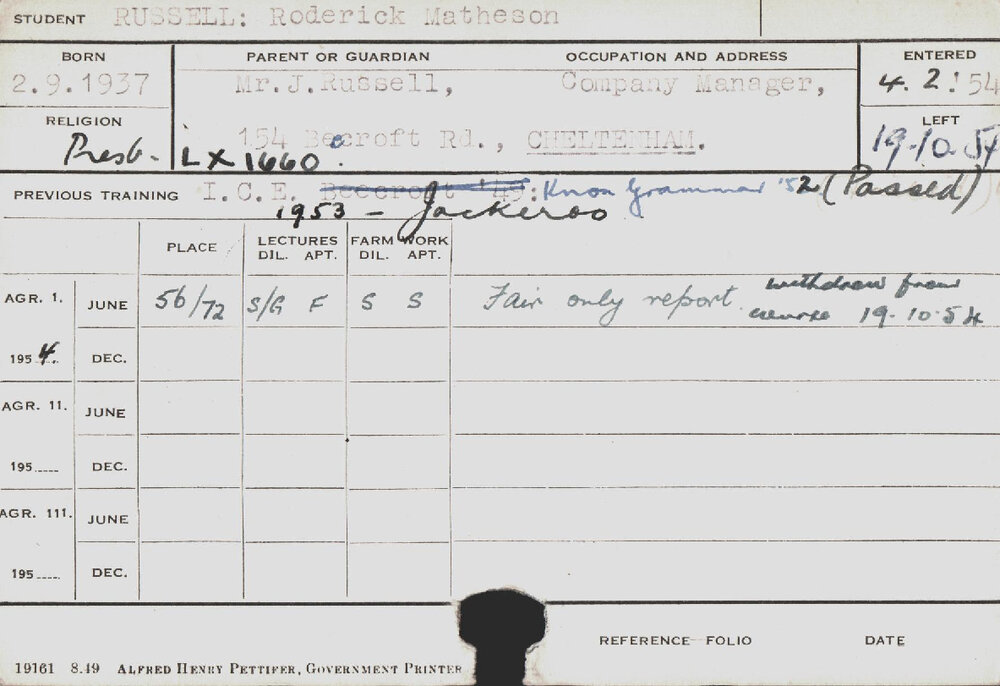 STUDENT RUSSELL: Roderick Matheson
BORN PARENT OR GUARDIAN OCCUPATION AND ADDRESS ENTERED
2.9.1937 Mr.J.Russell, Company Manager, 4.2.54
RELIGION 154 Beecroft Rd., CHELTENHAM. LEFT
Presb. LX1660. 19.10.54
PREVIOUS TRAINING I.C.E. Beecroft '52: Knox Grammar '52 (Passed)
1953 - Jackeroo
PLACE LECTURES FARM WORK
DIL. APT. DIL. APT.
AGR. 1. JUNE 56/72 S/G F S S Fair only report. withdrew from
course 19.10.54
1954. DEC.
AGR. 11. JUNE
195..... DEC.
AGR. 111. JUNE
195..... DEC.
REFERENCE FOLIO DATE
19161 8.49 ALFRED HENRY PETTIFER, GOVERNMENT PRINTER